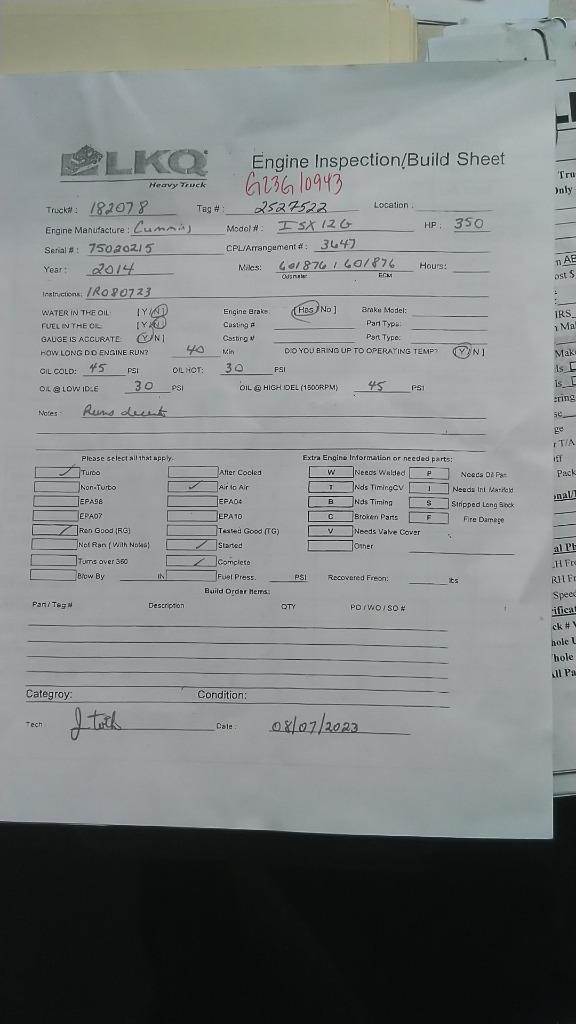 LKQ
Heavy Truck
Engine Inspection/Build Sheet
G23G10943
Truck# : 182078 Tag # : 2527522 Location :
Engine Manufacture : Cummins Model # : ISX12G HP : 350
Serial # : 75020215 CPL/Arrangement # : 3647
Year : 2014 Miles: 601876 / 601876 Hours:
Odometer ECM
Instructions: IR080723
WATER IN THE OIL [Y/N] Engine Brake [Has/No] Brake Model:
FUEL IN THE OIL [Y/N] Casting # Part Type:
GAUGE IS ACCURATE [Y/N] Casting # Part Type:
HOW LONG DID ENGINE RUN? 40 Min DID YOU BRING UP TO OPERATING TEMP? [Y/N]
OIL COLD: 45 PSI OIL HOT: 30 PSI
OIL @ LOW IDLE 30 PSI OIL @ HIGH IDEL (1500RPM) 45 PSI
Notes : Runs decent
Please select all that apply. Extra Engine Information or needed parts:
Turbo After Cooled W Needs Welded P Needs Oil Pan
Non-Turbo Air to Air T Nds TimingCV I Needs Int. Manifold
EPA98 EPA04 B Nds Timing S Stripped Long Block
EPA07 EPA10 C Broken Parts F Fire Damage
Ran Good (RG) Tested Good (TG) V Needs Valve Cover
Not Ran ( With Notes) Started Other
Turns over 360 Complete
Blow By IN Fuel Press. PSI Recovered Freon: lbs
Build Order Items:
Part / Tag # Description QTY PO / WO / SO #
Categroy: Condition:
Tech J toth Date : 08/07/2023